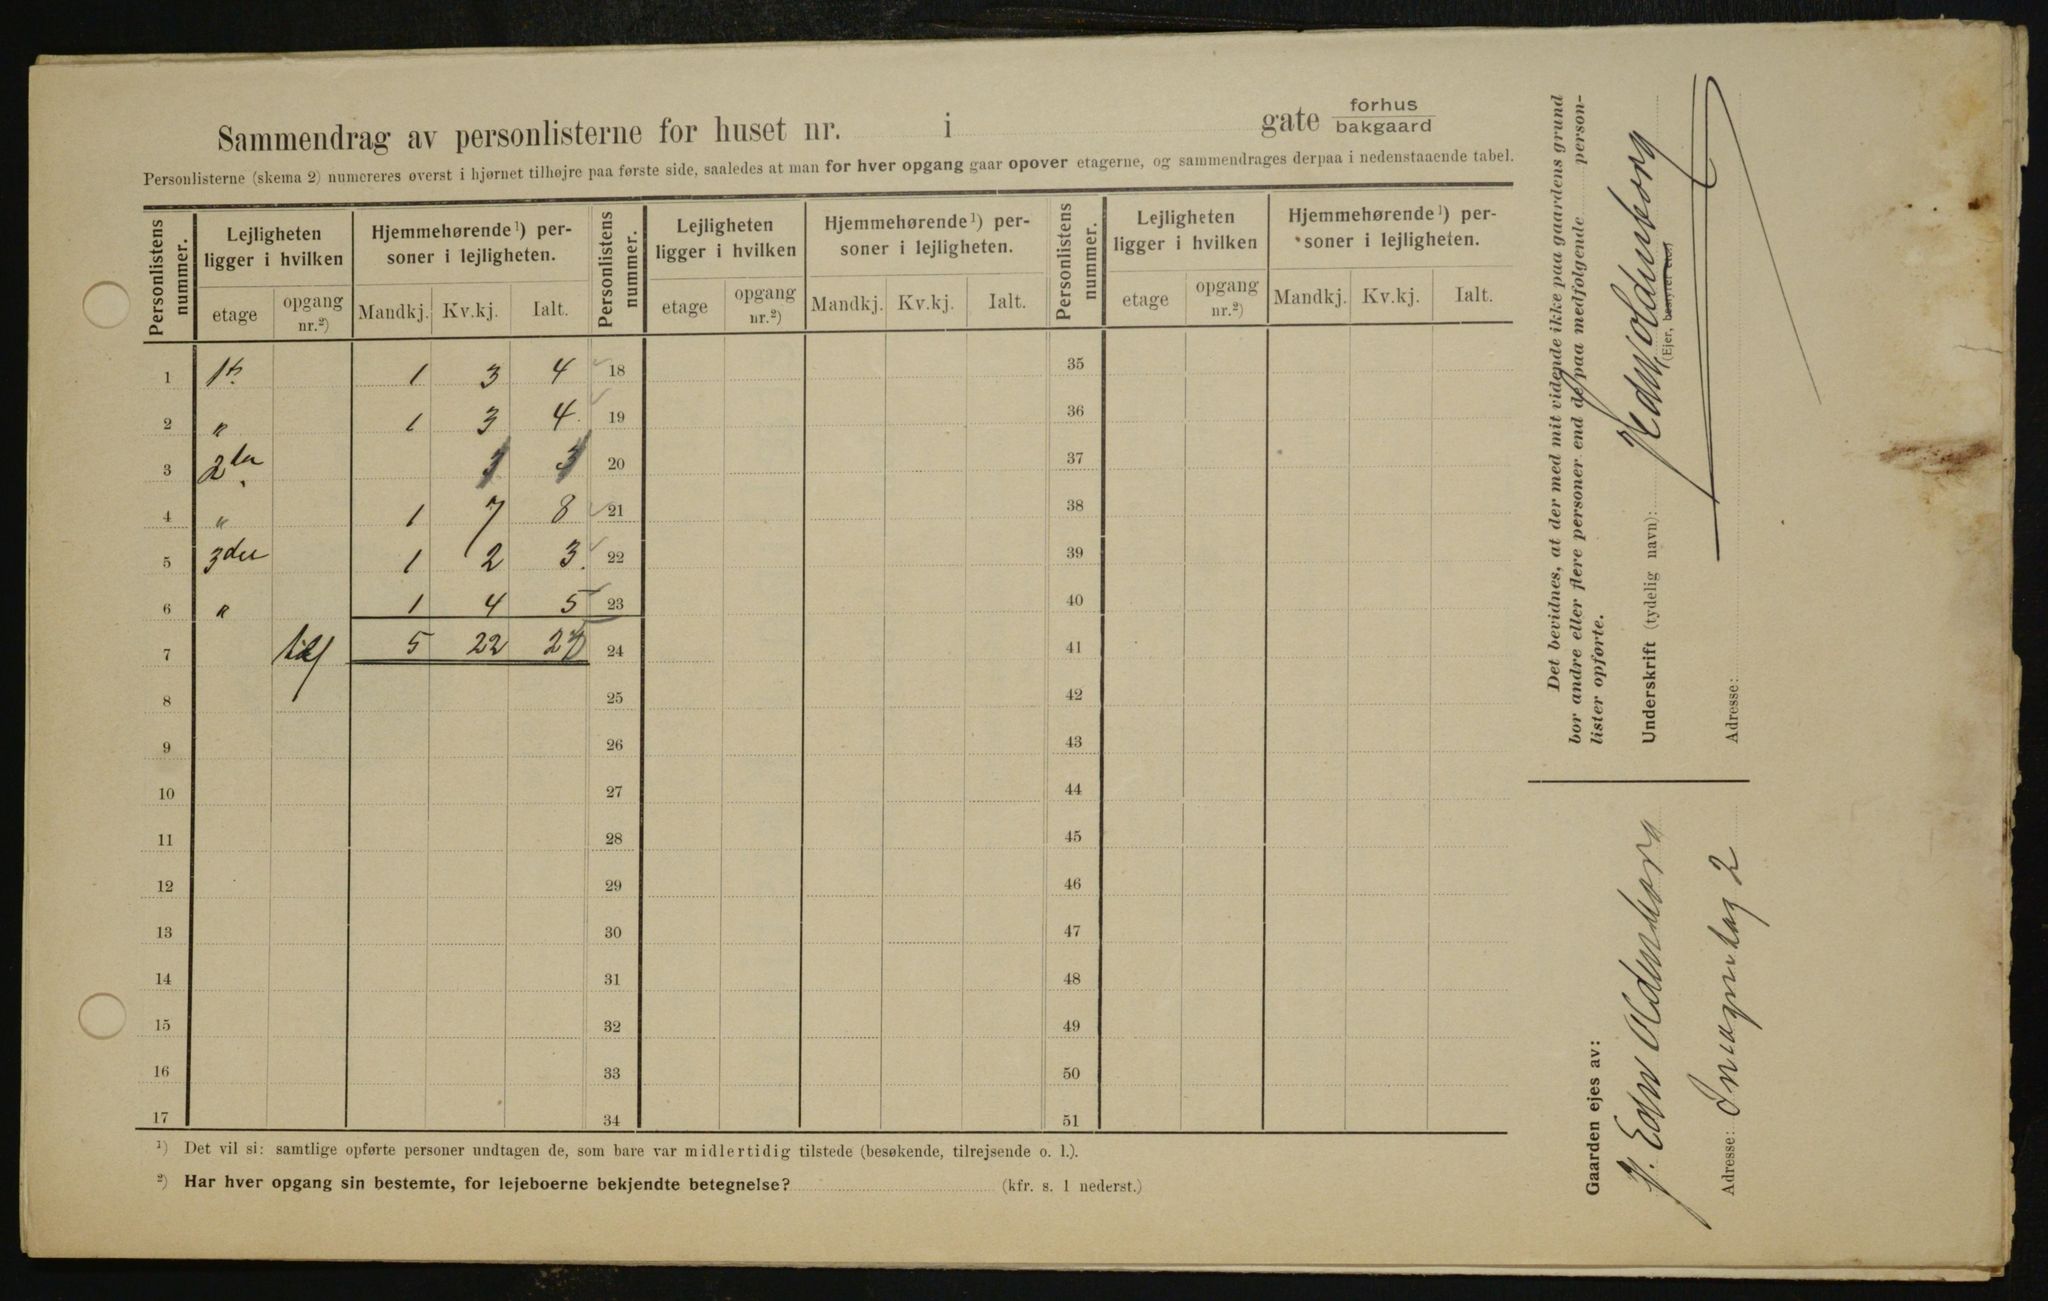 Sammendrag av personlisterne for huset nr. i gate forhus
bakgaard
Personlisterne (skema 2) numereres øverst i hjørnet tilhøjre paa første side, saaledes at man for hver opgang gaar opover etagerne, og sammendrages derpaa i nedenstaaende tabel.
Personlistens nummer. Lejligheten ligger i hvilken Hjemmehørende¹) personer i lejligheten. Personlistens nummer. Lejligheten ligger i hvilken Hjemmehørende¹) personer i lejligheten. Personlistens nummer. Lejligheten ligger i hvilken Hjemmehørende¹) personer i lejligheten.
etage opgang nr.²) Mandkj. Kv.kj. Ialt. etage opgang nr.²) Mandkj. Kv.kj. Ialt. etage opgang nr.²) Mandkj. Kv.kj. Ialt.
1 1ste 1 3 4 18 35
2 " 1 3 4 19 36
3 2den 3 3 20 37
4 " 1 7 8 21 38
5 3die 1 2 3 22 39
6 " 1 4 5 23 40
7 5 22 24 41
8 25 42
9 26 43
10 27 44
11 28 45
12 29 46
13 30 47
14 31 48
15 32 49
16 33 50
17 34 51
¹) Det vil si: samtlige opførte personer undtagen de, som bare var midlertidig tilstede (besøkende, tilrejsende o. l.).
²) Har hver opgang sin bestemte, for lejeboerne bekjendte betegnelse? (kfr. s. 1 nederst.)
Det bevidnes, at der med mit vidende ikke paa gaardens grund
bor andre eller flere personer end de paa medfølgende person-
lister opførte.
Underskrift (tydelig navn): H Edw. Oldenborg
(Ejer, bestyrer etc.)
Adresse:
Gaarden ejes av:
H. Edw Oldenborg
Adresse: 2